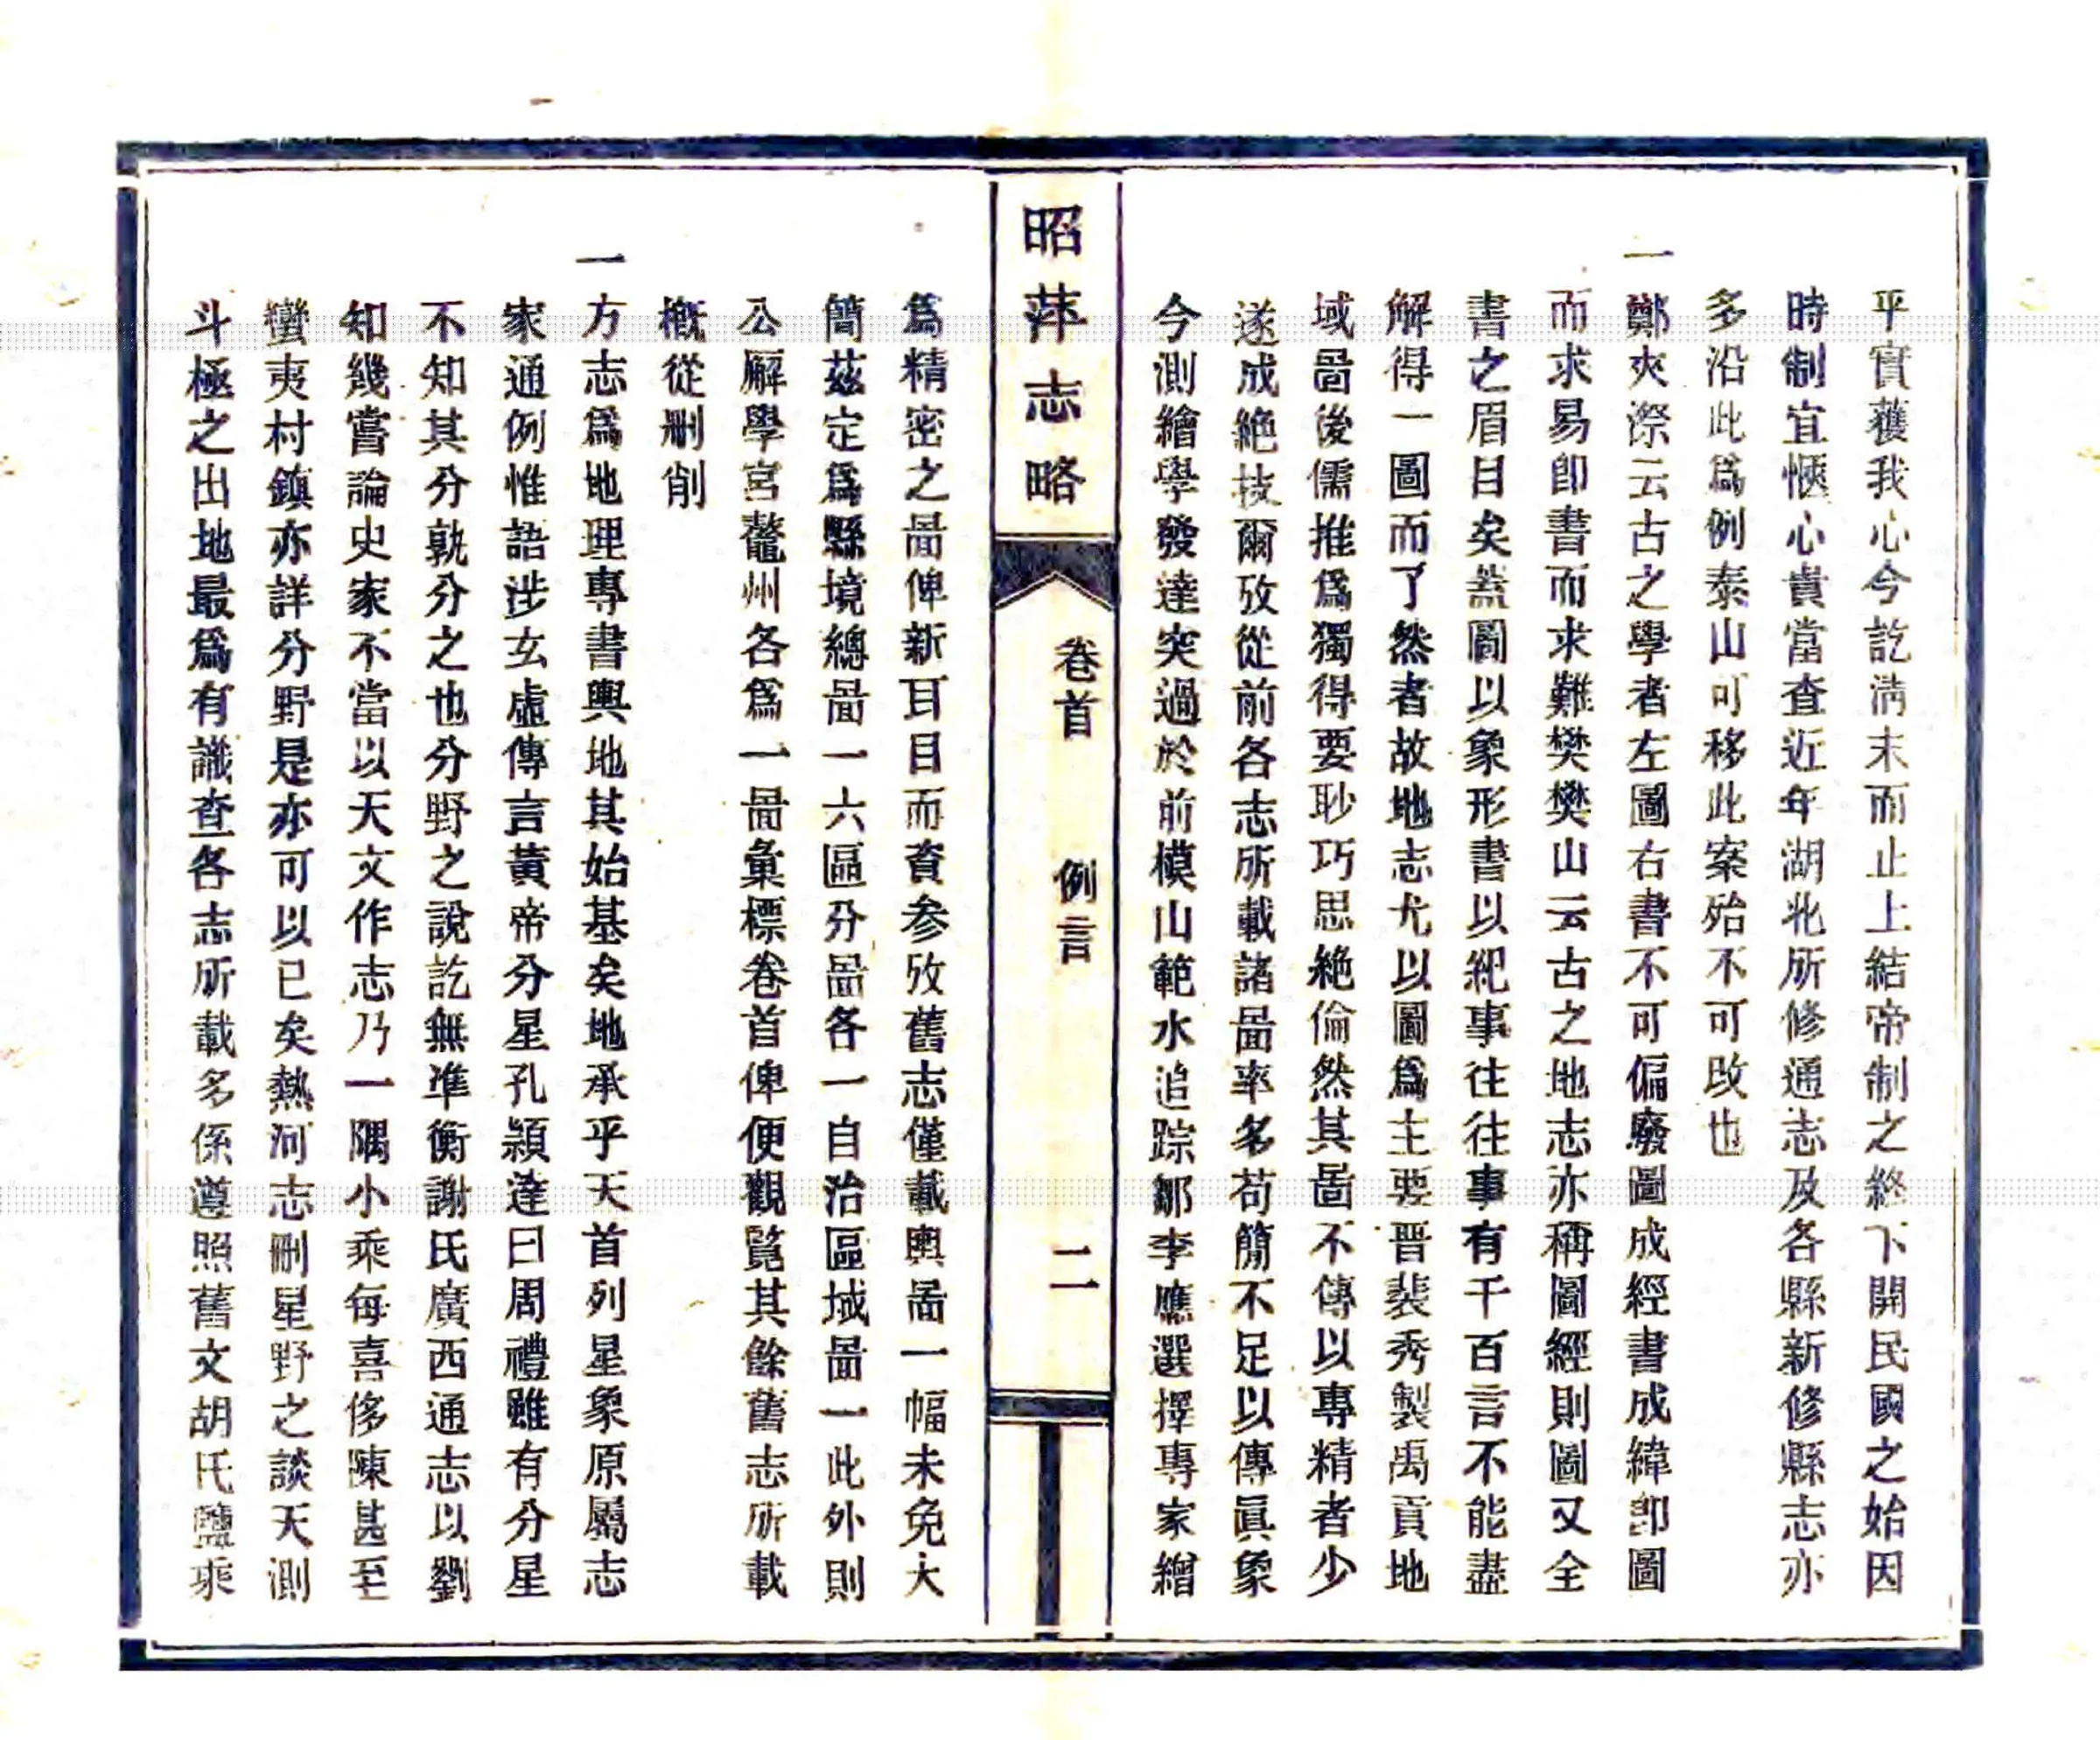 平實蕸我心今訖淸末而止上結帝制之終下開民國之始因
時制宜愜心貴當查近年湖北所修通志及各縣新修縣志亦
多沿此爲例泰山可移此案殆不可改也
一鄭夾漈云古之學者左圖右書不可偏廢圖成經書成緯卽圖
而求易卽書而求難樊樊山云古之地志亦稱圖經則圖又全
書之眉目矣蓋圖以象形書以紀事往往事有千百言不能盡
解得一圖而了然者故地志尤以圖爲主要晉裴秀製禹貢地
域啚後儒推爲獨得要眇巧思絶倫然其啚不傳以專精者少
遂成絶技爾攷從前各志所載諸啚率多苟簡不足以傳眞象
今測繪學發達突過於前模山範水追踪鄒李應選擇專家繪
昭萍志略
卷首 例言 二
爲精密之啚俾新耳目而資參攷舊志僅載輿啚一幅未免大
簡茲定爲縣境總啚一六區分啚各一自治區域啚一此外則
公廨學宮鼇州各爲一啚彙標卷首俾便觀覽其餘舊志所載
槪從刪削
一方志爲地理專書輿地其始基矣地承乎天首列星象原屬志
家通例惟語涉玄虛傳言黃帝分星孔潁達曰周禮雖有分星
不知其分孰分之也分野之說訖無準衡謝氏廣西通志以劉
知幾嘗論史家不當以天文作志乃一隅小乘每喜侈陳甚至
蠻夷村鎭亦詳分野是亦可以已矣熱河志刪星野之談天測
斗極之出地最爲有識查各志所載多係遵照舊文胡氏鹽乘